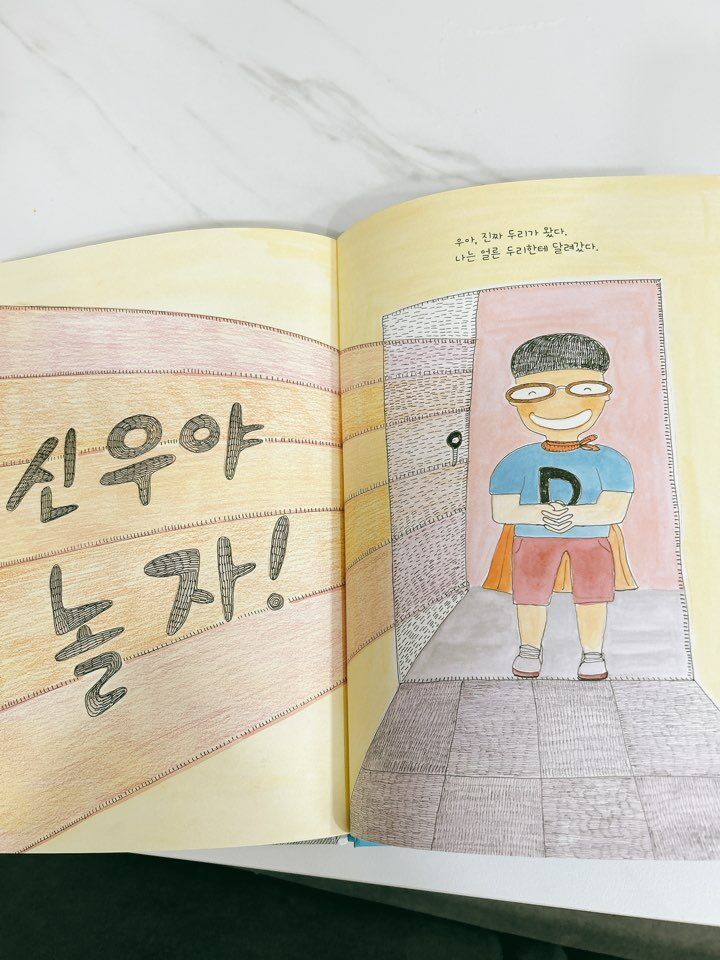 신우야
놀자!
우아, 진짜 두리가 왔다.
나는 얼른 두리한테 달려갔다.
D